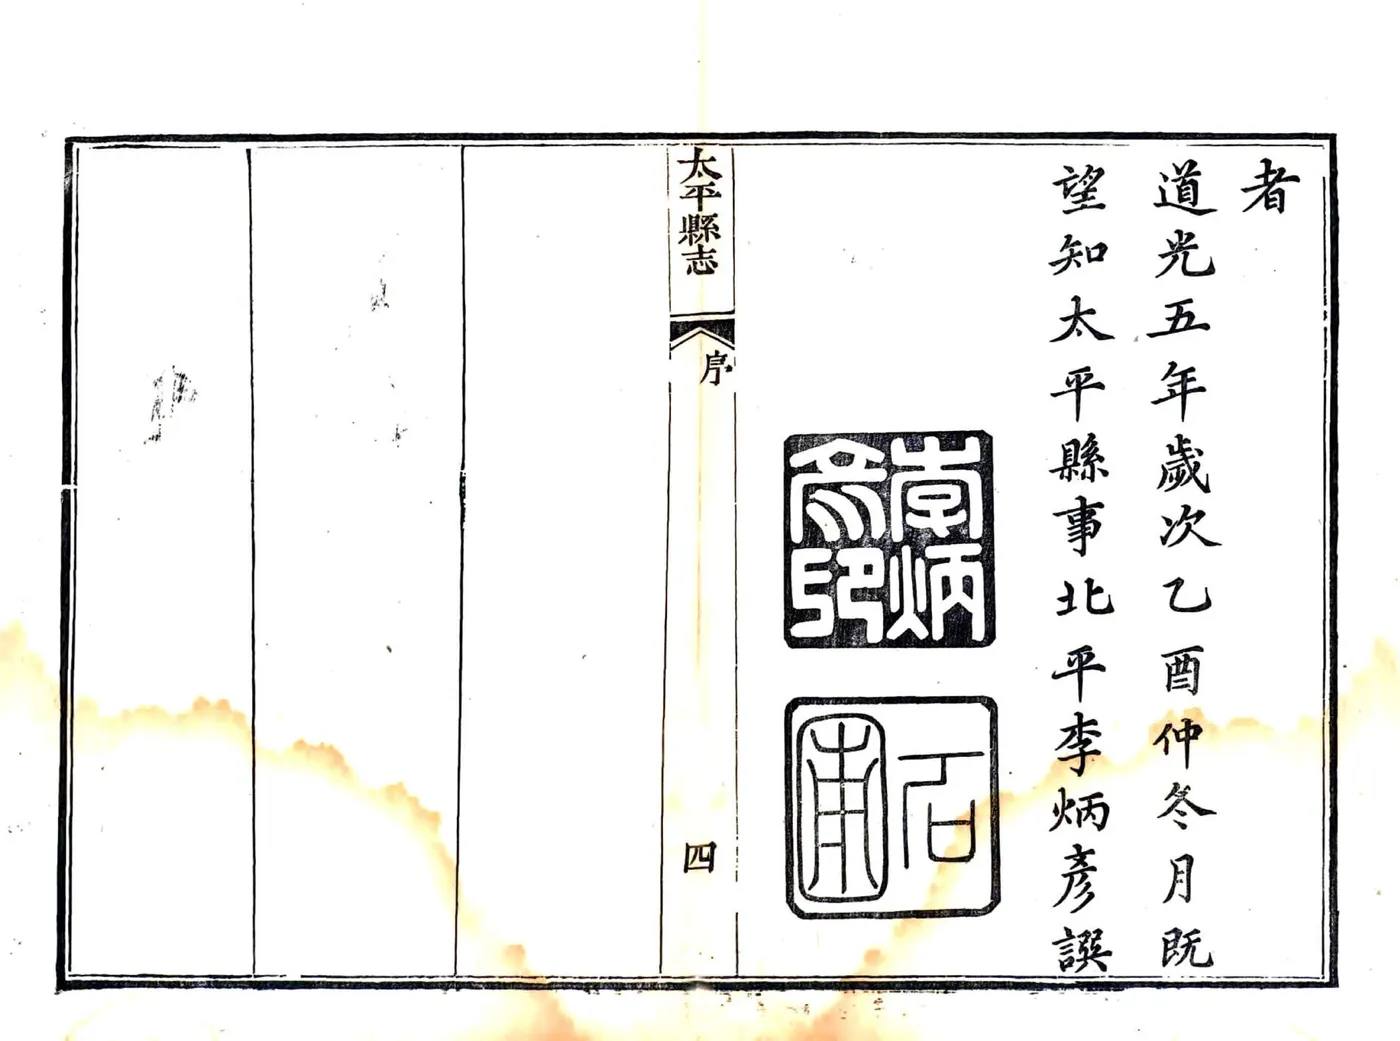 者
道光五年歲次乙酉仲冬月既
望知太平縣事北平李炳彥譔
李炳彥印
石甫
太平縣志
序
四